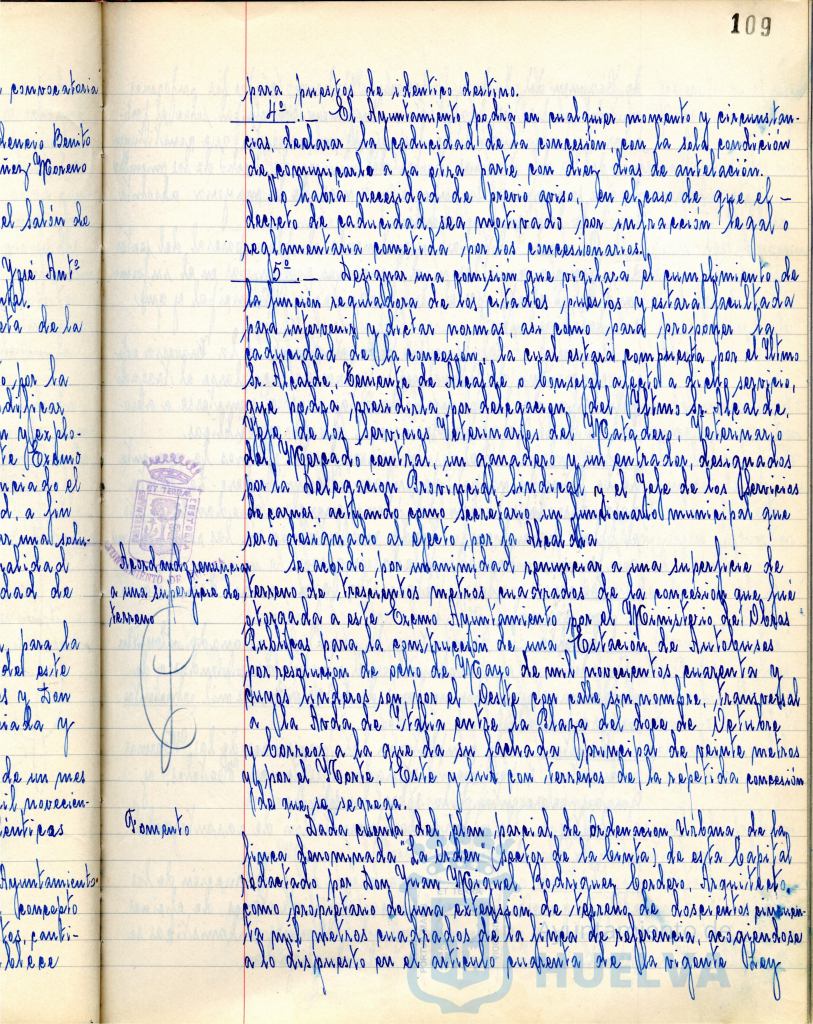 109
convocatoria
dencio Benito
ñez Moreno
el Salón de
José Antº
ntal.
eta de la
o por la
odificar
n y explo-
te Excmo
nciado el
d, a fin
ar una solu-
ralidad
dad de
para la
del este
s y Don
iada y
de un mes
mil novecien-
dénticas
Ayuntamiento
concepto
tos, canti-
blece
para puestos de identico destino.
4º - El Ayuntamiento podrá en cualquier momento y circunstan-
cias, declarar la caducidad de la concesión, con la sola condición
de comunicarlo a la otra parte con diez dias de antelación.
No habrá necesidad de previo aviso, en el caso de que el -
decreto de caducidad sea motivado por infracción legal o
reglamentaria cometida por los concesionarios.
5º - Designar una comision que vigilará el cumplimiento de
la función reguladora de los citados puestos y estará facultada
para intervenir y dictar normas, asi como para proponer la
caducidad de la concesión, la cual estará compuesta por el Iltmo
Sr. Alcalde, Teniente de Alcalde o Concejal, afecto a dicho servicio,
que podrá presidirla por delegacion del Iltmo Sr. Alcalde,
Jefe de los Servicios Veterinarios del Matadero, Veterinario
del Mercado central, un ganadero y un entrador, designados
por la Delegacion Provincial Sindical y el Jefe de los Servicios
de carnes, actuando como secretario un funcionario municipal que
será designado al efecto por la Alcaldia
Acordando renunciar
a una superficie de
terreno
Se acordó por unanimidad renunciar a una superficie de
terreno de trescientos metros cuadrados de la concesion que fué
otorgada a este Excmo Ayuntamiento por el Ministerio de Obras
Publicas para la construcción de una Estacion de Autobuses
por resolución de ocho de Mayo de mil novecientos cuarenta y
cuyos linderos son, por el Oeste con calle sin nombre, transversal
a la Avda. de Italia entre la Plaza del doce de Octubre
y Correos a la que da su fachada principal de veinte metros
y por el Norte, Este y Sur con terrenos de la repetida concesión
de que se segrega.
Fomento
Dada cuenta del plan parcial de Ordenacion Urbana de la
finca denominada "La Orden (Sector de La Cinta) de esta Capital
redactado por Don Juan Miguel Rodriguez Cordero, Arquitecto,
como propietario de una extensión de terreno de doscientos cincuen-
ta mil metros cuadrados de la finca de referencia, acogiendose
a lo dispuesto en el articulo cuarenta de la vigente Ley
Ayuntamiento de
HUELVA